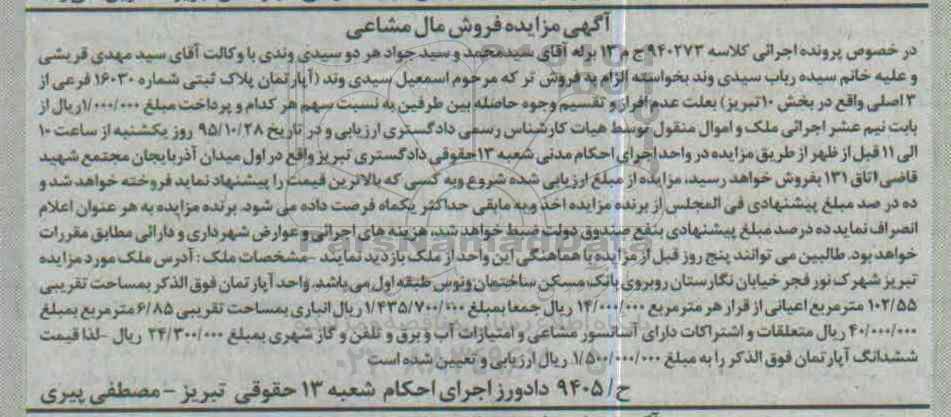 آگهی مزایده فروش مال مشاعی
در خصوص پرونده اجرائی کلاسه ۹۴۰۲۷۳ ج م ۱۳ برله آقای سیدمحمد و سید جواد هر دو سیدی وندی با وکالت آقای سید مهدی قریشی
و علیه خانم سیده رباب سیدی وند بخواسته الزام به فروش تر که مرحوم اسمعیل سیدی وند (آپارتمان پلاک ثبتی شماره ۱۶۰۳۰ فرعی از
۳ اصلی واقع در بخش ۱۰ تبریز) بعلت عدم افراز و تقسیم وجوه حاصله بین طرفین به نسبت سهم هر کدام و پرداخت مبلغ ۱/۰۰۰/۰۰۰ ریال از
بابت نیم عشر اجرائی ملک و اموال منقول توسط هیات کارشناس رسمی دادگستری ارزیابی و در تاریخ ۹۵/۱۰/۲۸ روز یکشنبه از ساعت ۱۰
الی ۱۱ قبل از ظهر از طریق مزایده در واحد اجرای احکام مدنی شعبه ۱۳ حقوقی دادگستری تبریز واقع در اول میدان آذربایجان مجتمع شهید
قاضی اتاق ۱۳۱ بفروش خواهد رسید، مزایده از مبلغ ارزیابی شده شروع و به کسی که بالاترین قیمت را پیشنهاد نماید فروخته خواهد شد و
ده در صد مبلغ پیشنهادی فی المجلس از برنده مزایده اخذ و به مابقی حداکثر یکماه فرصت داده می شود. برنده مزایده به هر عنوان اعلام
انصراف نماید ده درصد مبلغ پیشنهادی بنفع صندوق دولت ضبط خواهد شد، هزینه های اجرائی و عوارض شهرداری و دارائی مطابق مقررات
خواهد بود. طالبین می توانند پنج روز قبل از مزایده با هماهنگی این واحد از ملک بازدید نمایند -مشخصات ملک : آدرس ملک مورد مزایده
تبریز شهرک نور فجر خیابان نگارستان روبروی بانک مسکن ساختمان ونوس طبقه اول می باشد. واحد آپارتمان فوق الذکر بمساحت تقریبی
۱۰۲/۵۵ مترمربع اعیانی از قرار هر مترمربع ۱۴/۰۰۰/۰۰۰ ریال جمعا بمبلغ ۱/۴۳۵/۷۰۰/۰۰۰ ریال انباری بمساحت تقریبی ۶/۸۵ مترمربع بمبلغ
۴۰/۰۰۰/۰۰۰ ریال متعلقات و اشتراکات دارای آسانسور مشاعی و امتیازات آب و برق و تلفن و گاز شهری بمبلغ ۲۴/۳۰۰/۰۰۰ ریال -لذا قیمت
ششدانگ آپارتمان فوق الذکر را به مبلغ ۱/۵۰۰/۰۰۰/۰۰۰ ریال ارزیابی و تعیین شده است
ح/ ۹۴۰۵ دادورز اجرای احکام شعبه ۱۳ حقوقی تبریز - مصطفی پیری
ParsNamadData